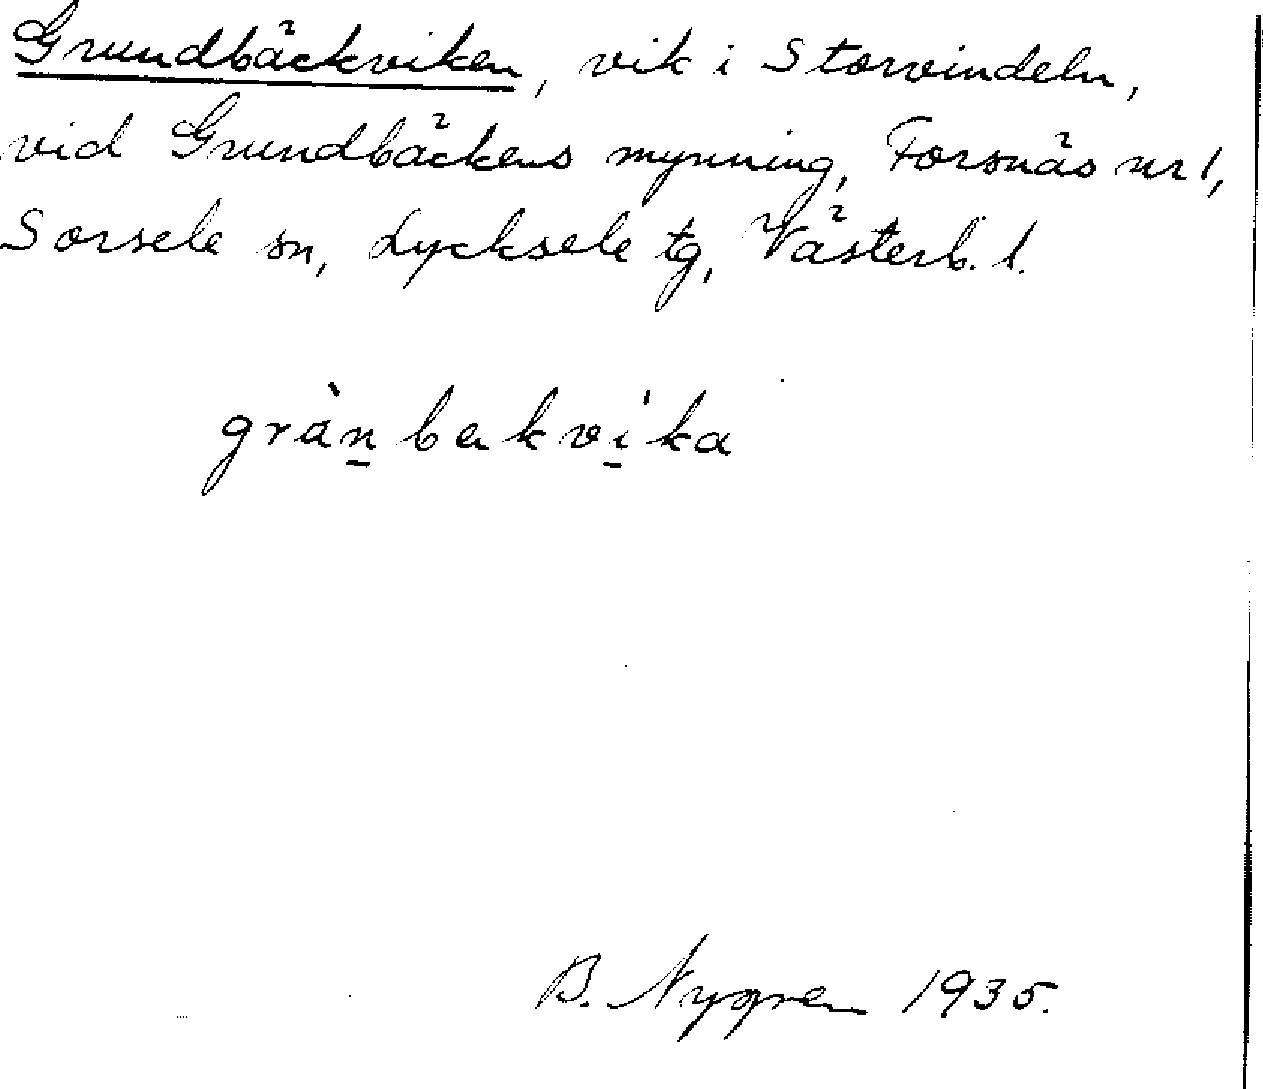 Grundbäckviken, vik i Storvindeln,
vid Grundbäckens mynning, Forsnäs nr 1,
Sorsele sn, Lycksele tg, Västerb. l.
grànbakvika
B. Nygren 1935.